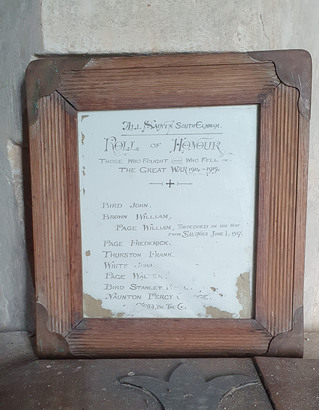 All Saints South Elmham.
Roll of Honour
Those who fought and who fell in
the Great War 1914–1919.
Bird John.
Brown William.
Page William,
from Salonica June 1, 1917.
Page Frederick.
Thurston Frank.
White
Page
Bird Stanley
Naunton Percy